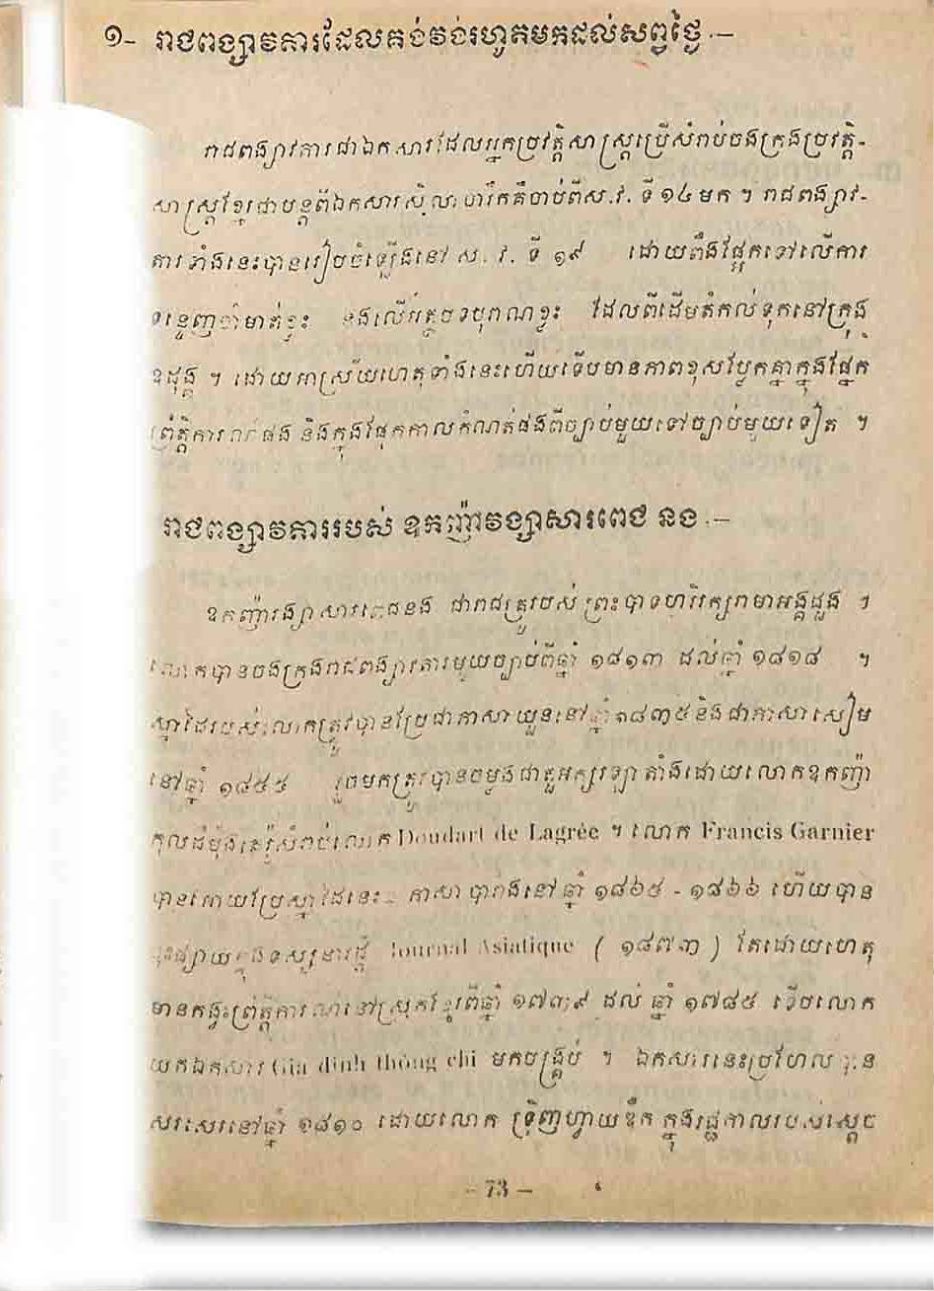 ១- រាជពង្សាវតារដែលគង់វង់រហូតមកដល់សព្វថ្ងៃ .—
រាជពង្សាវតារជាឯកសារដែលអ្នកប្រវត្តិសាស្ត្រប្រើសំរាប់ចងក្រងប្រវត្តិ-
សាស្ត្រខ្មែរជាបន្តពីឯកសារសិលាចារឹកគឺចាប់ពីស.វ. ទី ១៤ មក ។ រាជពង្សាវ-
តារទាំងនេះបានរៀបចំឡើងនៅ ស. វ. ទី ១៩ ដោយពឹងផ្អែកទៅលើការ
ទន្ទេញចាំមាត់ខ្លះ នងលើអត្ថបទបុរាណខ្លះ ដែលពីដើមតំកល់ទុកនៅក្រុង
ឧដុង្គ ។ ដោយអាស្រ័យហេតុទាំងនេះហើយទើបមានភាពខុសប្លែកគ្នាក្នុងផ្នែក
ព្រឹត្តិការណ៍ផង និងក្នុងផ្នែកកាលកំណត់ផងពីច្បាប់មួយទៅច្បាប់មួយទៀត ។
រាជពង្សាវតាររបស់ ឧកញ៉ាវង្សាសារពេជ នង .—
ឧកញ៉ាវង្សាសារពេជនង ជារាជគ្រូរបស់ ព្រះបាទហរិរក្សរាមាអង្គដួង ។
លោកបានចងក្រងរាជពង្សាវតារមួយច្បាប់ពីឆ្នាំ ១៨១៣ ដល់ឆ្នាំ ១៨១៨ ។
ស្នាដៃរបស់លោកត្រូវបានប្រែជាភាសាយួននៅឆ្នាំ ១៨៣៥ និងជាភាសាសៀម
នៅឆ្នាំ ១៨៥៥ រួចមកត្រូវបានចម្លងជាតួអក្សរឡាតាំងដោយលោកឧកញ៉ា
កុលដំម៉ុងតេរ៉ូសំរាប់លោក Doudart de Lagrée ។ លោក Francis Garnier
បានអោយប្រែស្នាដៃនេះ ភាសាបារាំងនៅឆ្នាំ ១៨៦៥ - ១៨៦៦ ហើយបាន
ផ្សាយក្នុងទស្សនាវដ្ដី Journal Asiatique ( ១៨៧៣ ) តែដោយហេតុ
មានកង្វះព្រឹត្តិការណ៍នៅស្រុកខ្មែរពីឆ្នាំ ១៧៣៩ ដល់ ឆ្នាំ ១៧៨៥ ទើបលោក
យកឯកសារ Gia dinh thông chi មកបង្គ្រប់ ។ ឯកសារនេះប្រហែល បាន
សរសេរនៅឆ្នាំ ១៨១០ ដោយលោក ទ្រិញហ្វាយឌឹក ក្នុងរជ្ជកាលរបស់ស្តេច
– 73 —